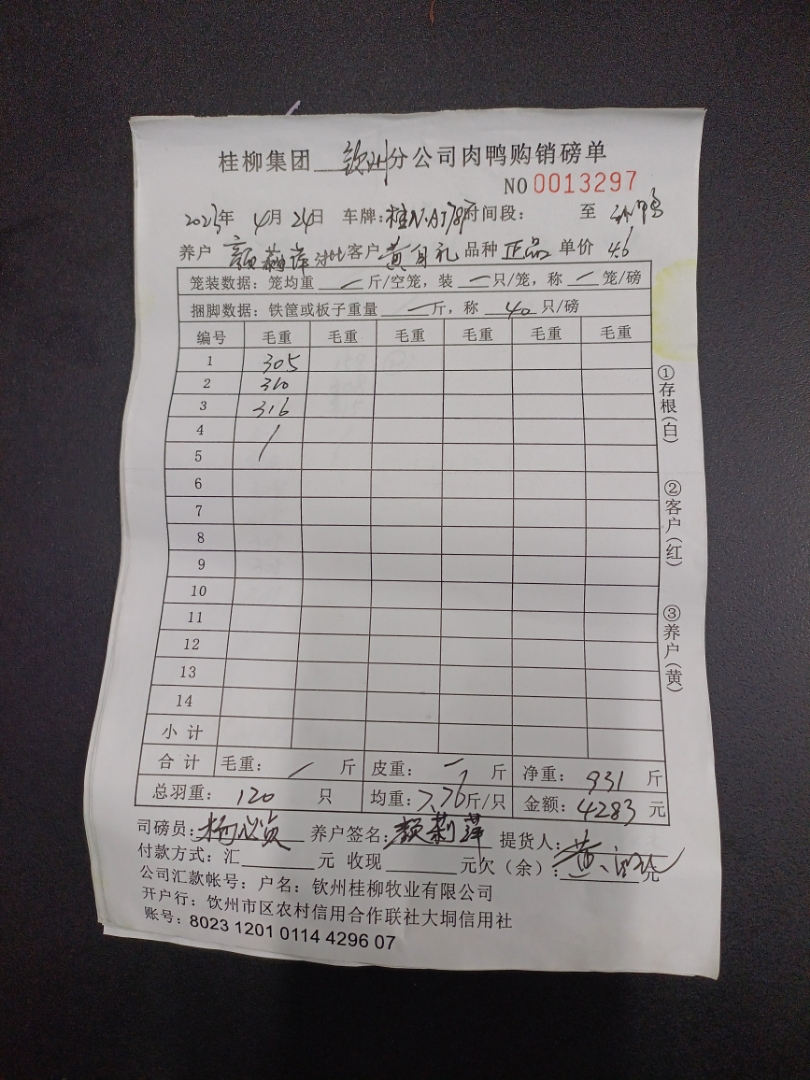 桂柳集团 钦州 分公司肉鸭购销磅单
NO 0013297
2023年 4月 24日 车牌: 桂N·A178 时间段: 至
养户 颜莉萍 客户 黄 礼 品种 正品 单价 4.6
笼装数据: 笼均重 — 斤/空笼, 装 — 只/笼, 称 — 笼/磅
捆脚数据: 铁筐或板子重量 — 斤, 称 40 只/磅
编号 毛重 毛重 毛重 毛重 毛重 毛重
1 305
2 310
3 316
4 /
5 /
6
7
8
9
10
11
12
13
14
小计
合计 毛重: / 斤 皮重: — 斤 净重: 931 斤
总羽重: 120 只 均重: 7.76 斤/只 金额: 4283 元
司磅员: 杨 养户签名: 颜莉萍 提货人: 黄
付款方式: 汇 元 收现 元欠(余): 元
公司汇款帐号: 户名: 钦州桂柳牧业有限公司
开户行: 饮州市区农村信用合作联社大垌信用社
账号: 8023 1201 0114 4296 07
①存根(白)
②客户(红)
③养户(黄)